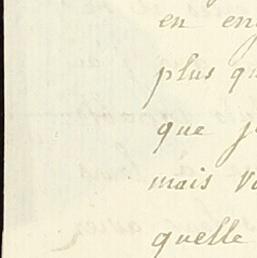 en en
plus qu
que j
mais v
quelle